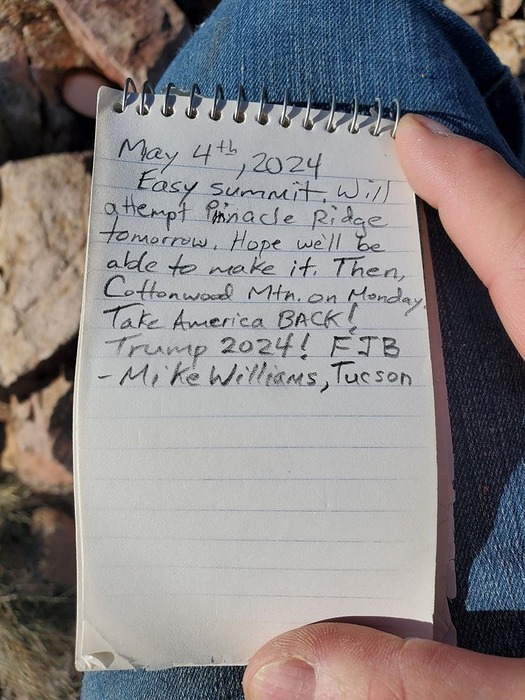 May 4th, 2024
Easy summit. Will
attempt Pinnacle Ridge
tomorrow. Hope we'll be
able to make it. Then,
Cottonwood Mtn. on Monday.
Take America BACK!
Trump 2024! FJB
- Mike Williams, Tucson